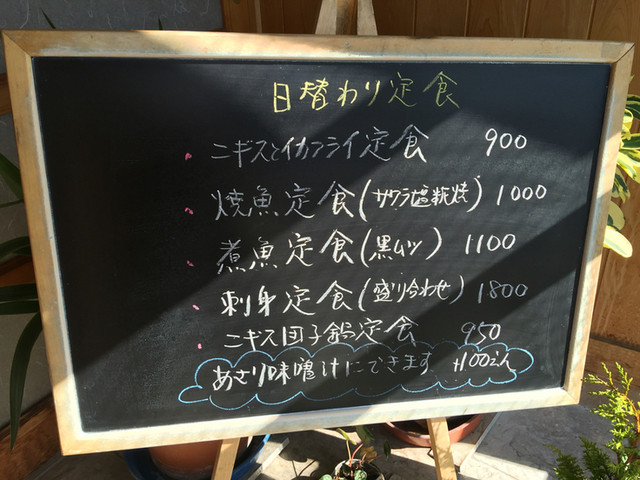 日替わり定食
・ニギスとイカフライ定食 900
・焼魚定食(サワラ塩糀焼) 1000
・煮魚定食(黒ムツ) 1100
・刺身定食(盛り合わせ) 1800
・ニギス団子鍋定食 950
あさり味噌汁にできます +100えん